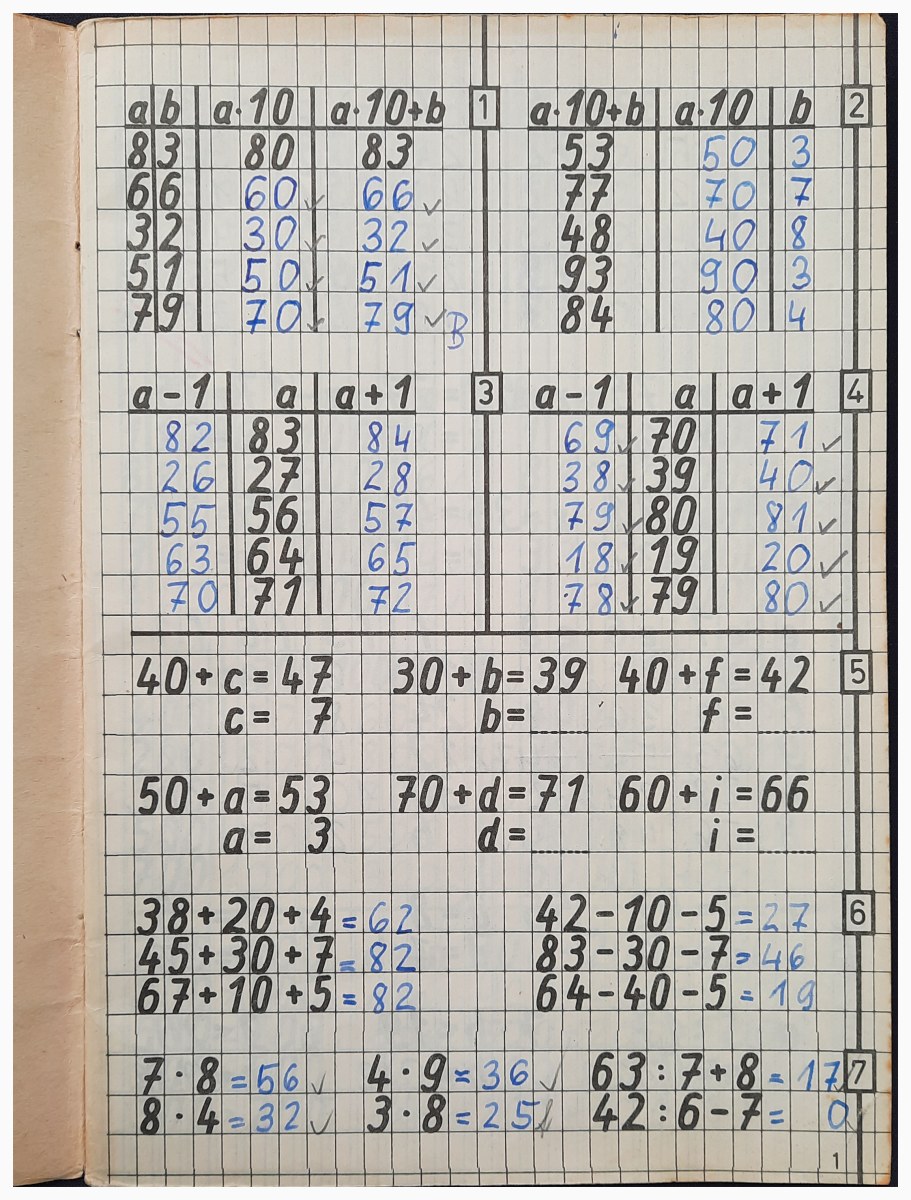 a b a·10 a·10+b 1
83 80 83
66 60 ✓ 66 ✓
32 30 ✓ 32 ✓
51 50 ✓ 51 ✓
79 70 ✓ 79 ✓ B
a·10+b a·10 b 2
53 50 3
77 70 7
48 40 8
93 90 3
84 80 4
a-1 a a+1 3
82 83 84
26 27 28
55 56 57
63 64 65
70 71 72
a-1 a a+1 4
69 ✓ 70 71 ✓
38 ✓ 39 40 ✓
79 ✓ 80 81 ✓
18 ✓ 19 20 ✓
78 ✓ 79 80 ✓
40+c=47 30+b=39 40+f=42 5
c= 7 b= f=
50+a=53 70+d=71 60+i=66
a= 3 d= i=
38+20+4=62 42-10-5=27 6
45+30+7=82 83-30-7=46
67+10+5=82 64-40-5=19
7·8=56 ✓ 4·9=36 ✓ 63:7+8=17 7
8·4=32 ✓ 3·8=25 42:6-7= 0
1